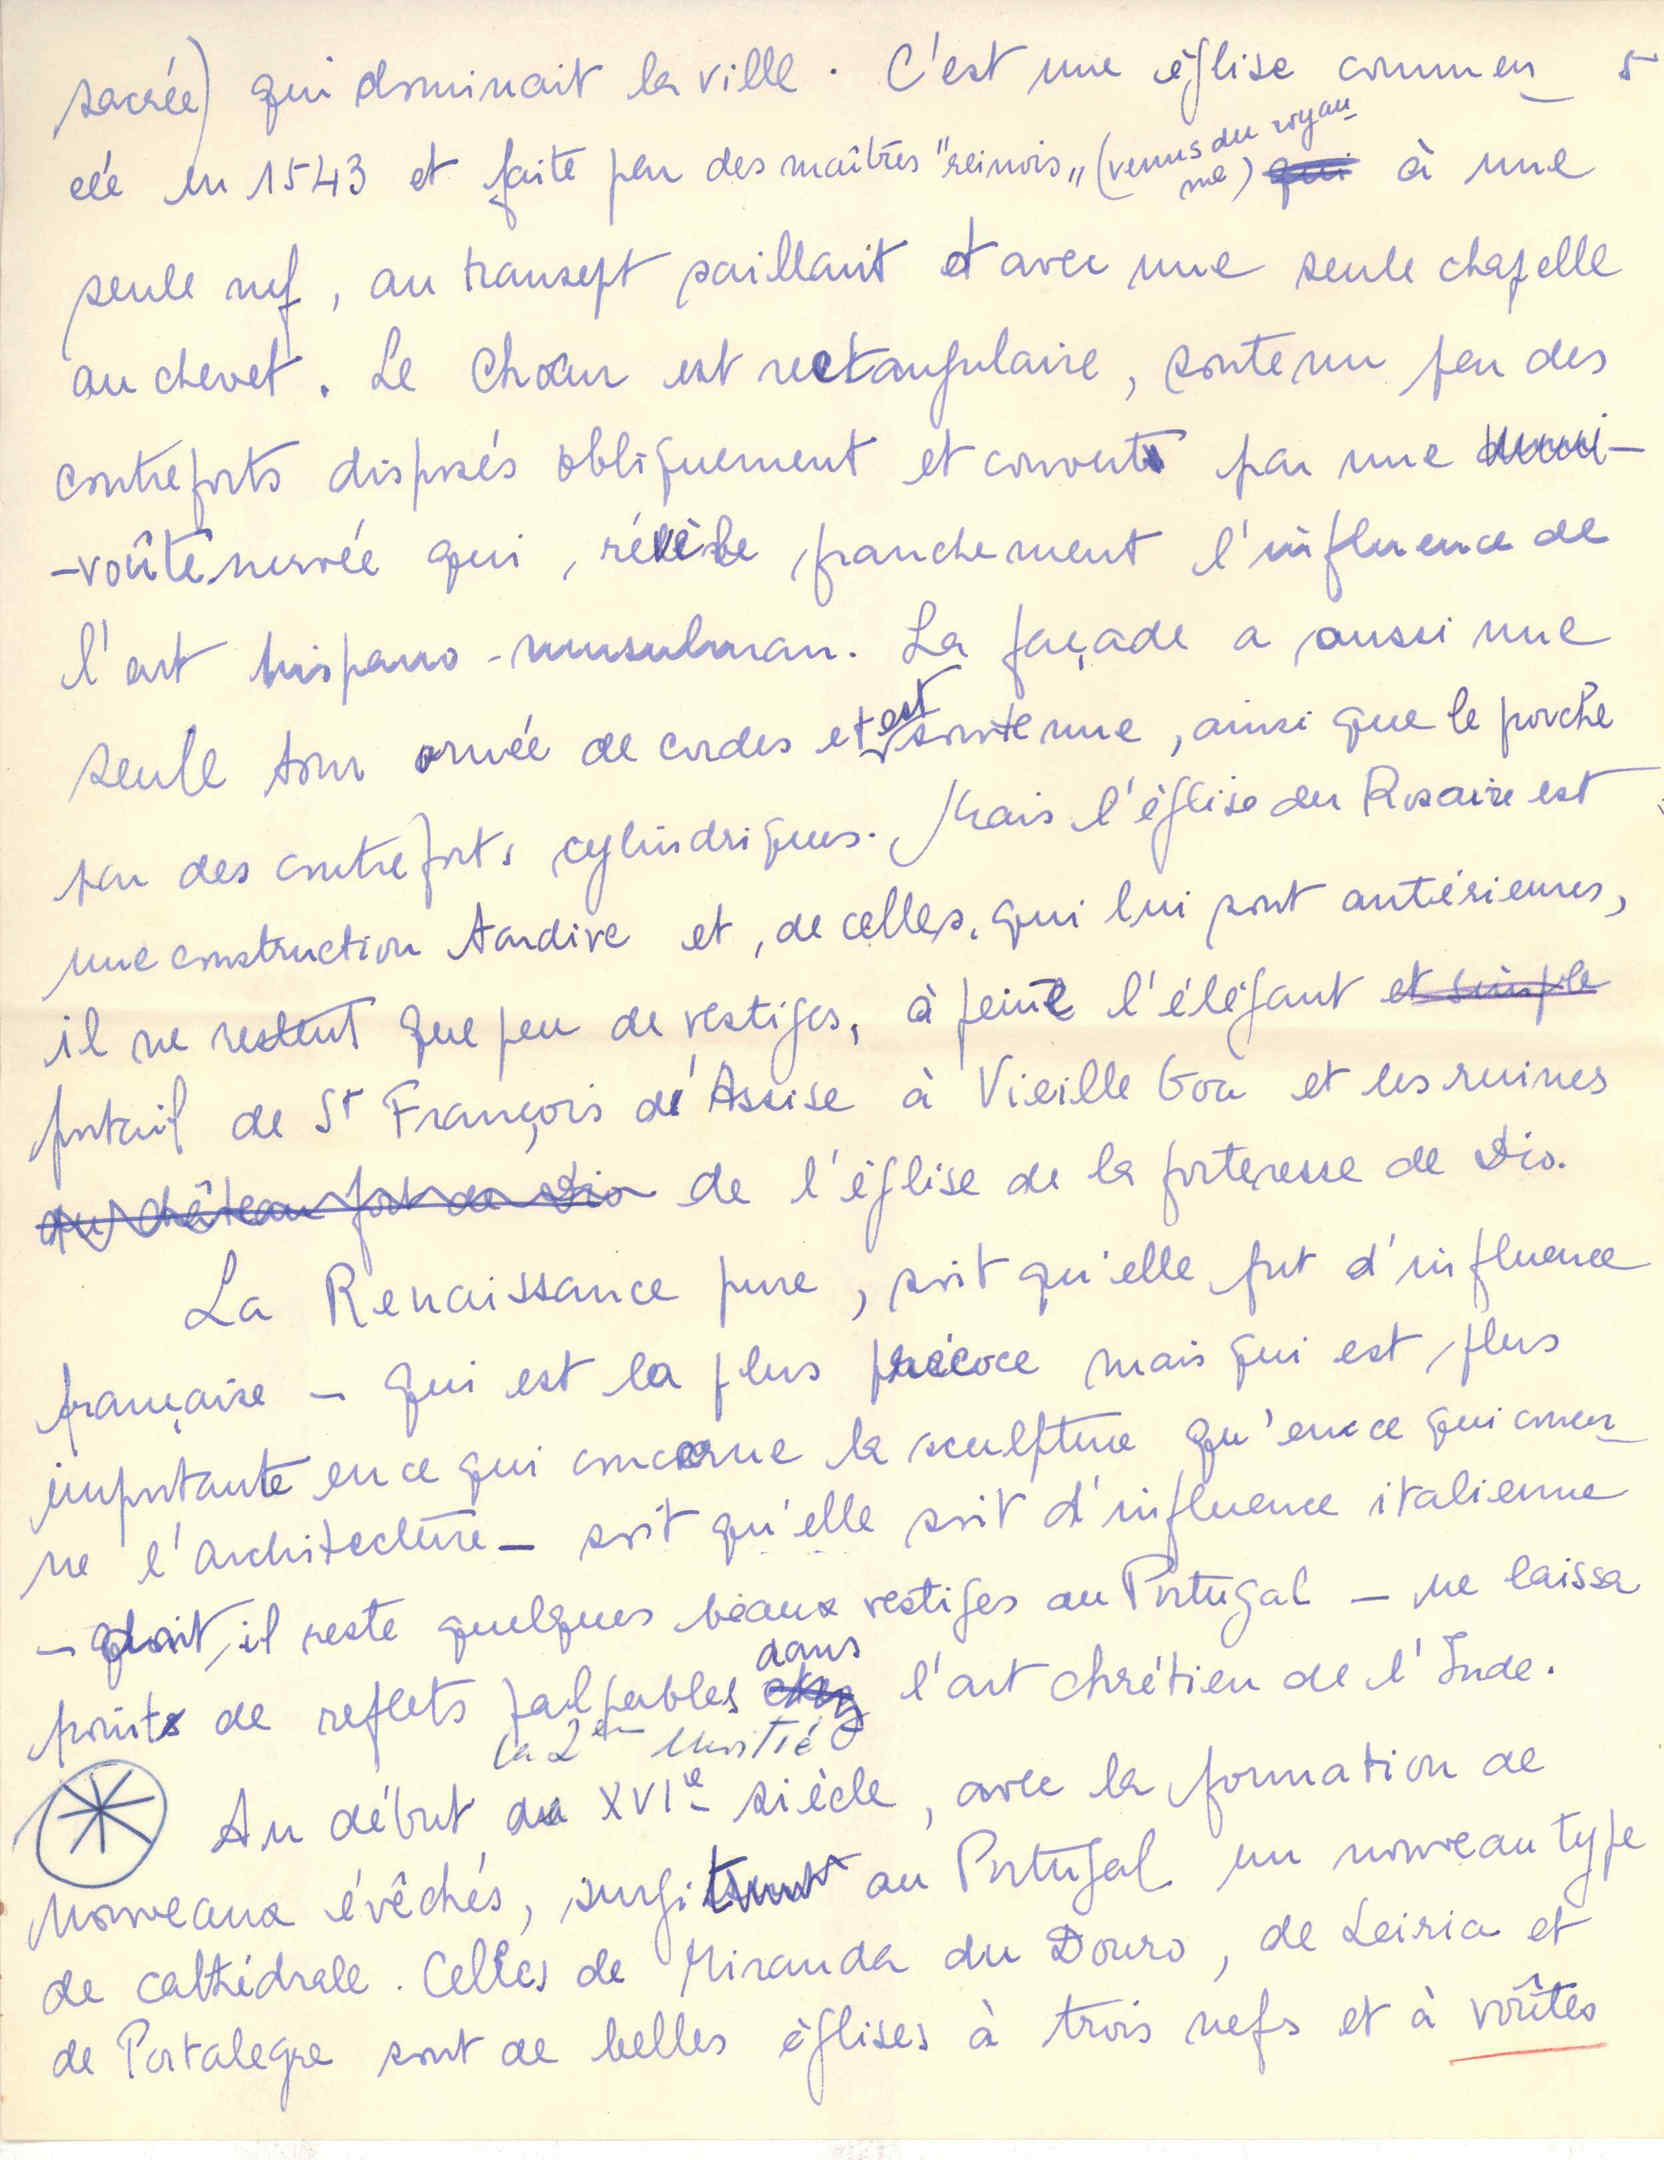 sacrée) qui dominait la ville. C'est une église commen 5
cée en 1543 et faite par des maîtres "reinois" (venus du royau
me) qui à une
seule nef, au transept saillant et avec une seule chapelle
au chevet. Le Chœur est rectangulaire, soutenu par des
contreforts disposés obliquement et couvert par une
-voûte nervée qui, révèle franchement l'influence de
l'art hispano-musulman. La façade a aussi une
seule tour ornée de cordes et est soutenue, ainsi que le porche
par des contreforts cylindriques. Mais l'église du Rosaire est
une construction tardive et, de celles, qui lui sont antérieures,
il ne restent que peu de vestiges, à peine l'élégant et simple
portail de St François d'Assise à Vieille Goa et les ruines
du château fort de Dio de l'église de la forteresse de Dio.
La Renaissance pure, soit qu'elle fut d'influence
française - qui est la plus précoce mais qui est plus
importante en ce qui concerne la sculpture qu'en ce qui concer
ne l'architecture - soit qu'elle soit d'influence italienne
- dont il reste quelques beaux vestiges au Portugal - ne laissa
point de reflets palpables dans l'art chrétien de l'Inde.
la 2ème Moitié
Au début du XVIe siècle, avec la formation de
nouveaux évêchés, surgit au Portugal un nouveau type
de cathédrale. Celles de Miranda du Douro, de Leiria et
de Portalegre sont de belles églises à trois nefs et à voûtes